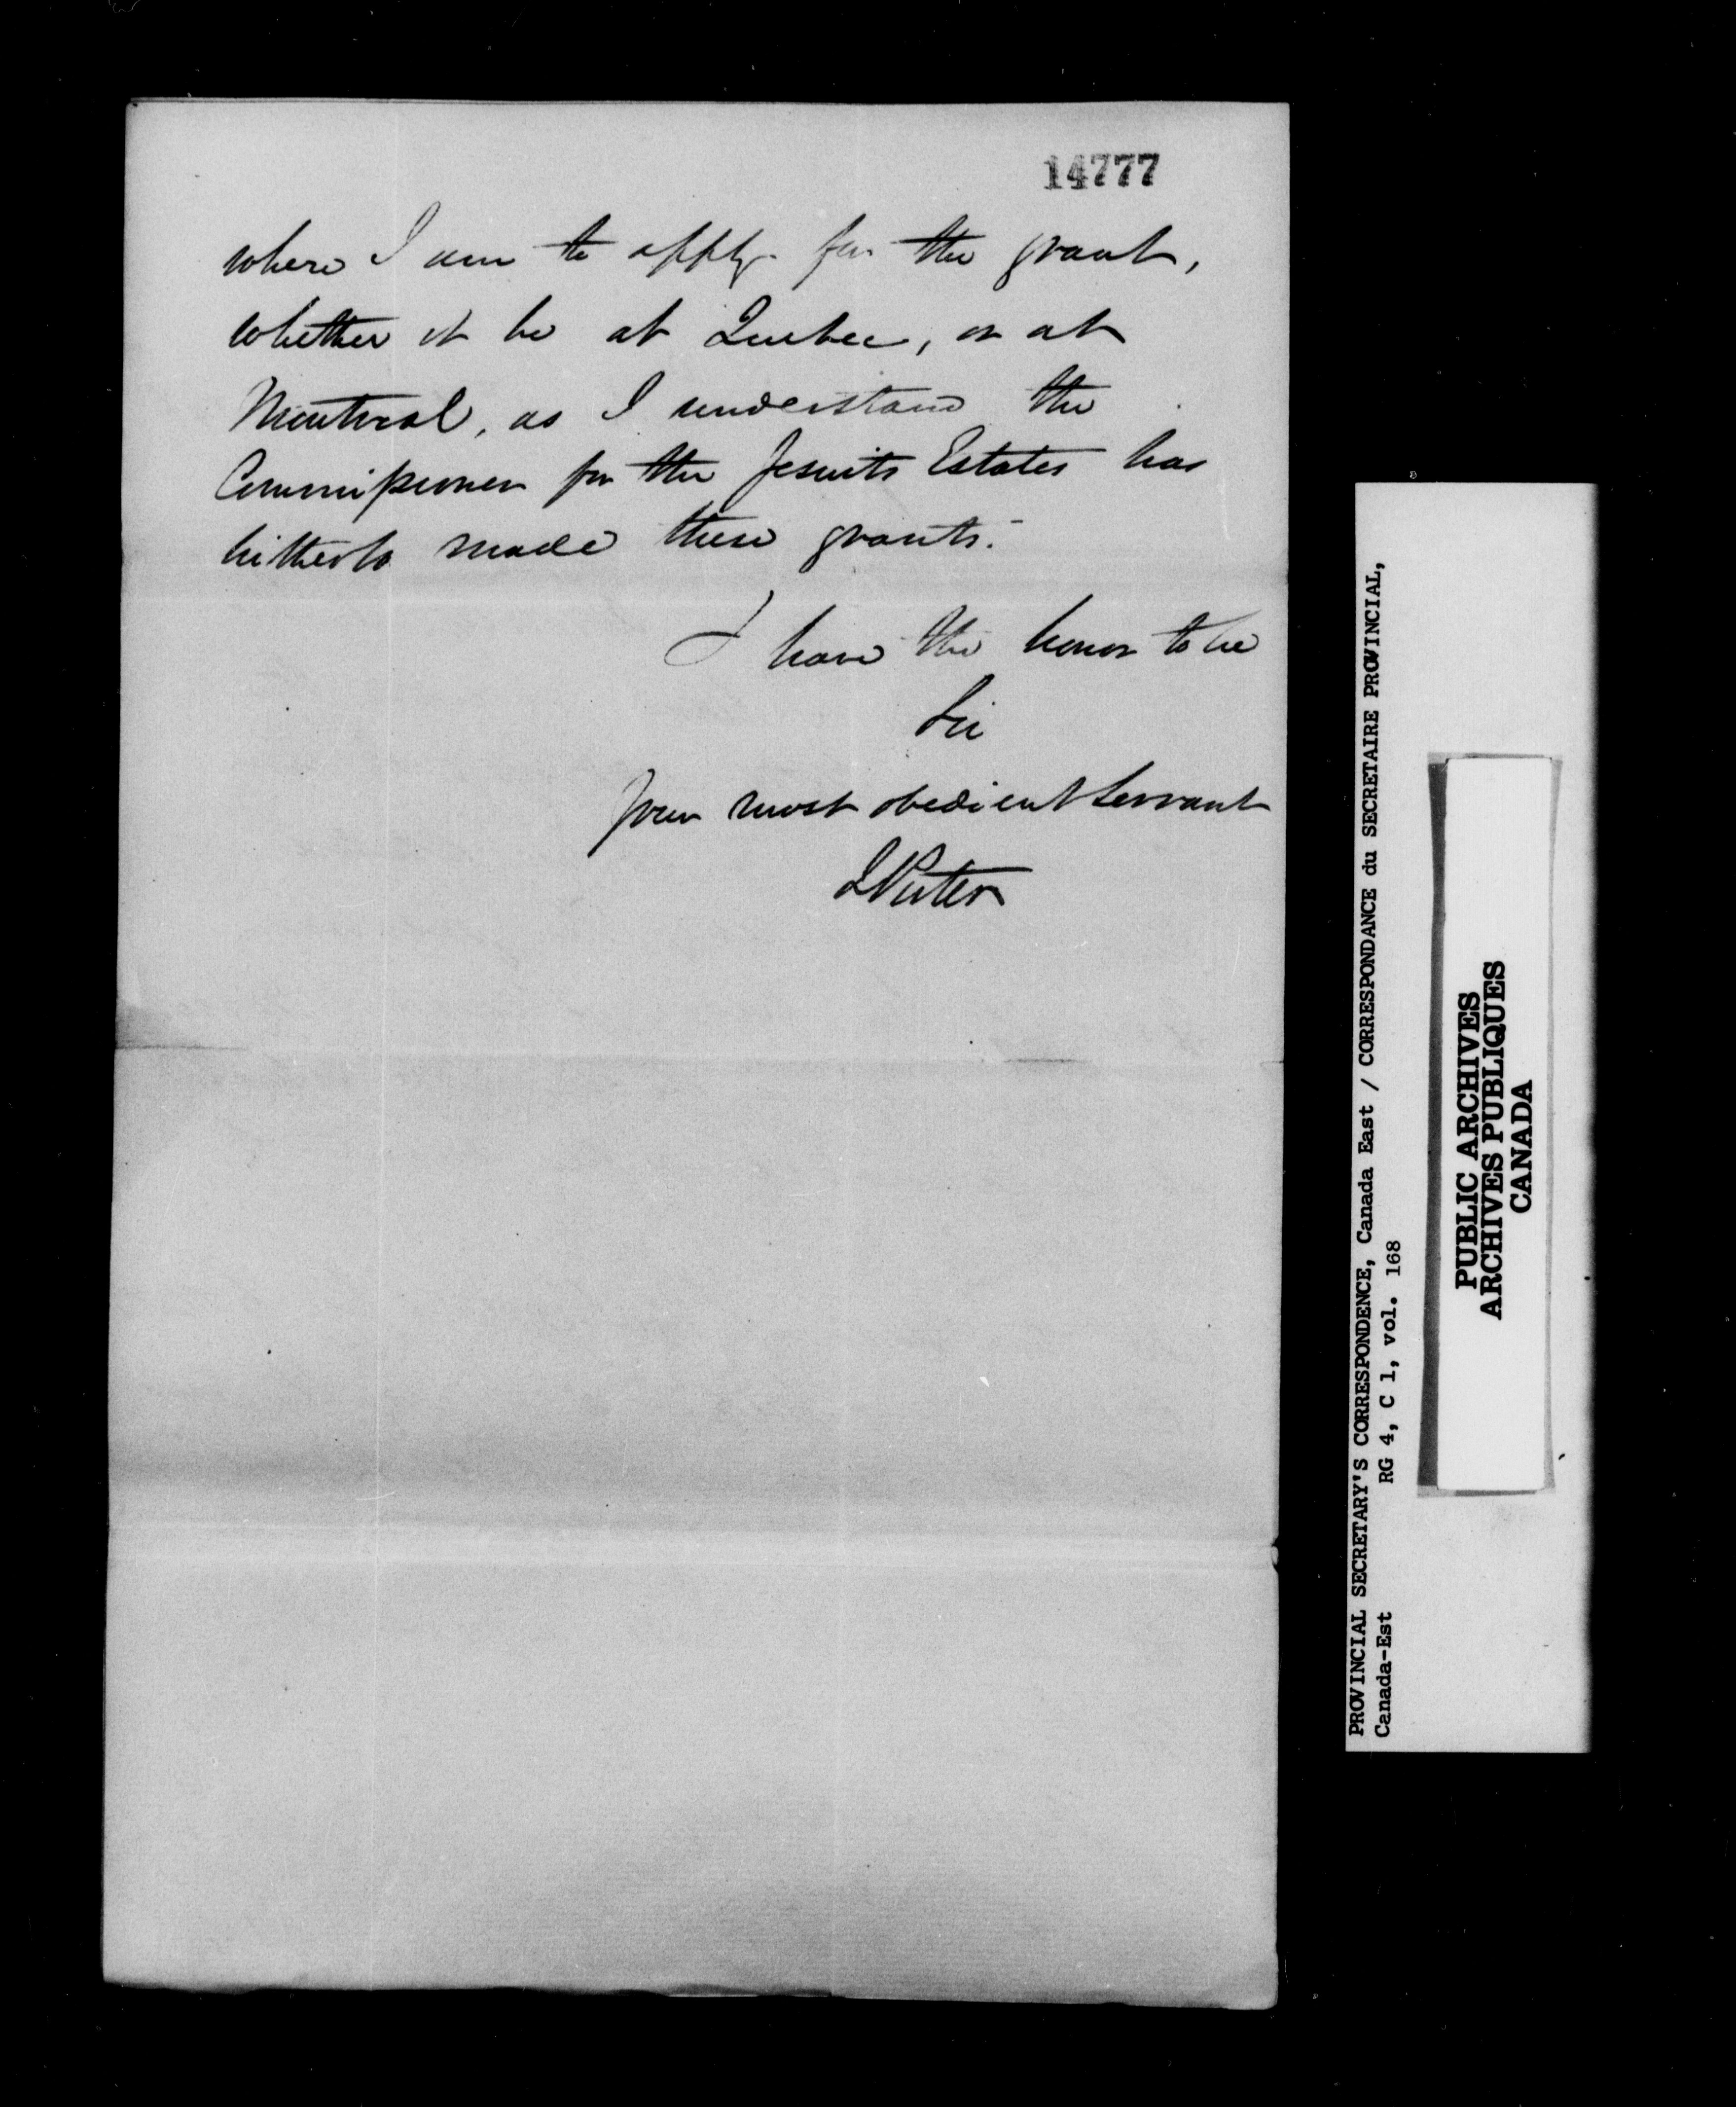 14777
where I am to apply for the grant,
whether it be at Quebec, or at
Montreal, as I understand the
Commissioner for the Jesuits Estates has
hitherto made these grants.
I have the honor to be
Sir
Your most obedient Servant
PROVINCIAL SECRETARY'S CORRESPONDENCE, Canada East / CORRESPONDANCE du SECRETAIRE PROVINCIAL,
Canada-Est RG 4, C 1, vol. 168
PUBLIC ARCHIVES
ARCHIVES PUBLIQUES
CANADA